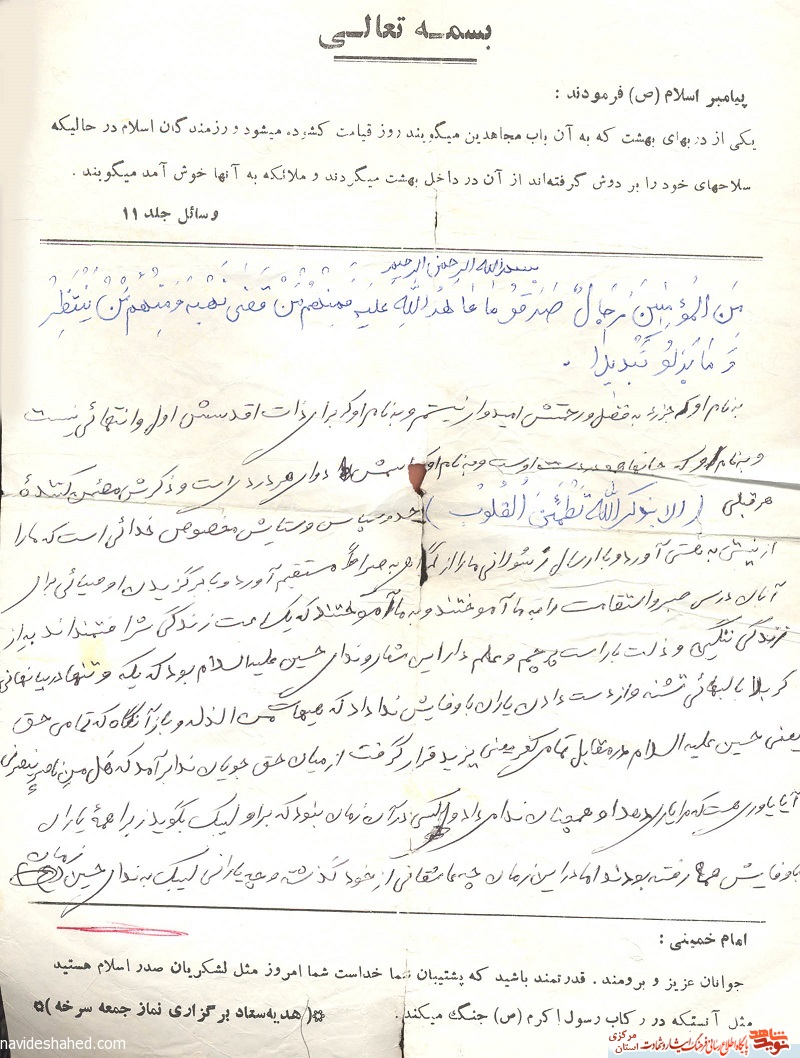 بسمه تعالی
پیامبر اسلام (ص) فرمودند :
یکی از دربهای بهشت که به آن باب مجاهدین میگویند روز قیامت کشوده میشود و رزمندگان اسلام در حالیکه
سلاحهای خود را بر دوش گرفته‌اند از آن در داخل بهشت میگردند و ملائکه به آنها خوش آمد میگویند .
وسائل جلد ۱۱
بسم الله الرحمن الرحیم
مِنَ المُؤمِنینَ رِجالٌ صَدَقُو ما عاهَدُ اللهَ عَلَیه فَمِنهُم مَن قَضی نَحبَه وَ مِنهُم مَن یَنتَظِرُ
وَ ما بَدَّلُو تَبدیلا .
به نام او که جزء به فضل و رحمتش امیدوار نیستم و به نام او که برای ذات اقدسش اول و انتهائی نیست
و به نام او که اوست و به نام او دوای هر دردی است و ذکرش مطمئن کنندهٔ
هر قلبی (الا بذکر الله تَطمَئِنَّ القُلوُب) حمد و سپاس و ستایش مخصوص خدائی است که ما را
از نیستی به هستی آورد و با ارسال رسولانی ما را از گمراهی به صراط مستقیم آورد و با برگزیدن اوصیائی برای
آنان درس صبر و استقامت را به ما آموختند و به ما آموختند که یک ساعت زندگی شرافتمنداند به از
زندگی ننگین و ذلت بار است پرچم و علم دار این شعار و ندای حسین علیه السلام بود که یکه و تنها در بیابانهای
کربلا با لبهائی تشنه و از دست دادن یاران با وفایش ندا داد که هیهات من الذله و باز آنگاه که تمامی حق
یعنی حسین علیه السلام در مقابل تمامی کفر یعنی یزید قرار گرفت از میان حق جویان ندا برآمد که هَل مِن ناصِرٍ یَنصُرنی
آیا یاوری هست که مرا یاری دهد او همچنان ندا می داد ولی کسی در آن زمان نبود که بر او لبیک بگوید زیرا همهٔ یاران
باوفایش رفته بودند اما در این زمان چه عاشقانی از خود گذشته و چه یارانی لبیک به ندای حسین زمان
امام خمینی :
جوانان عزیز و برومند . قدرتمند باشید که پشتیبان شما خداست شما امروز مثل لشکریان صدر اسلام هستید
مثل آنستکه در رکاب رسول اکرم (ص) جنگ میکند . *(هدیه ستاد برگزاری نماز جمعه سرخه)*
navideshahed.com
نوید شاهد
پایگاه اطلاع رسانی فرهنگ ایثار و شهادت استان مرکزی